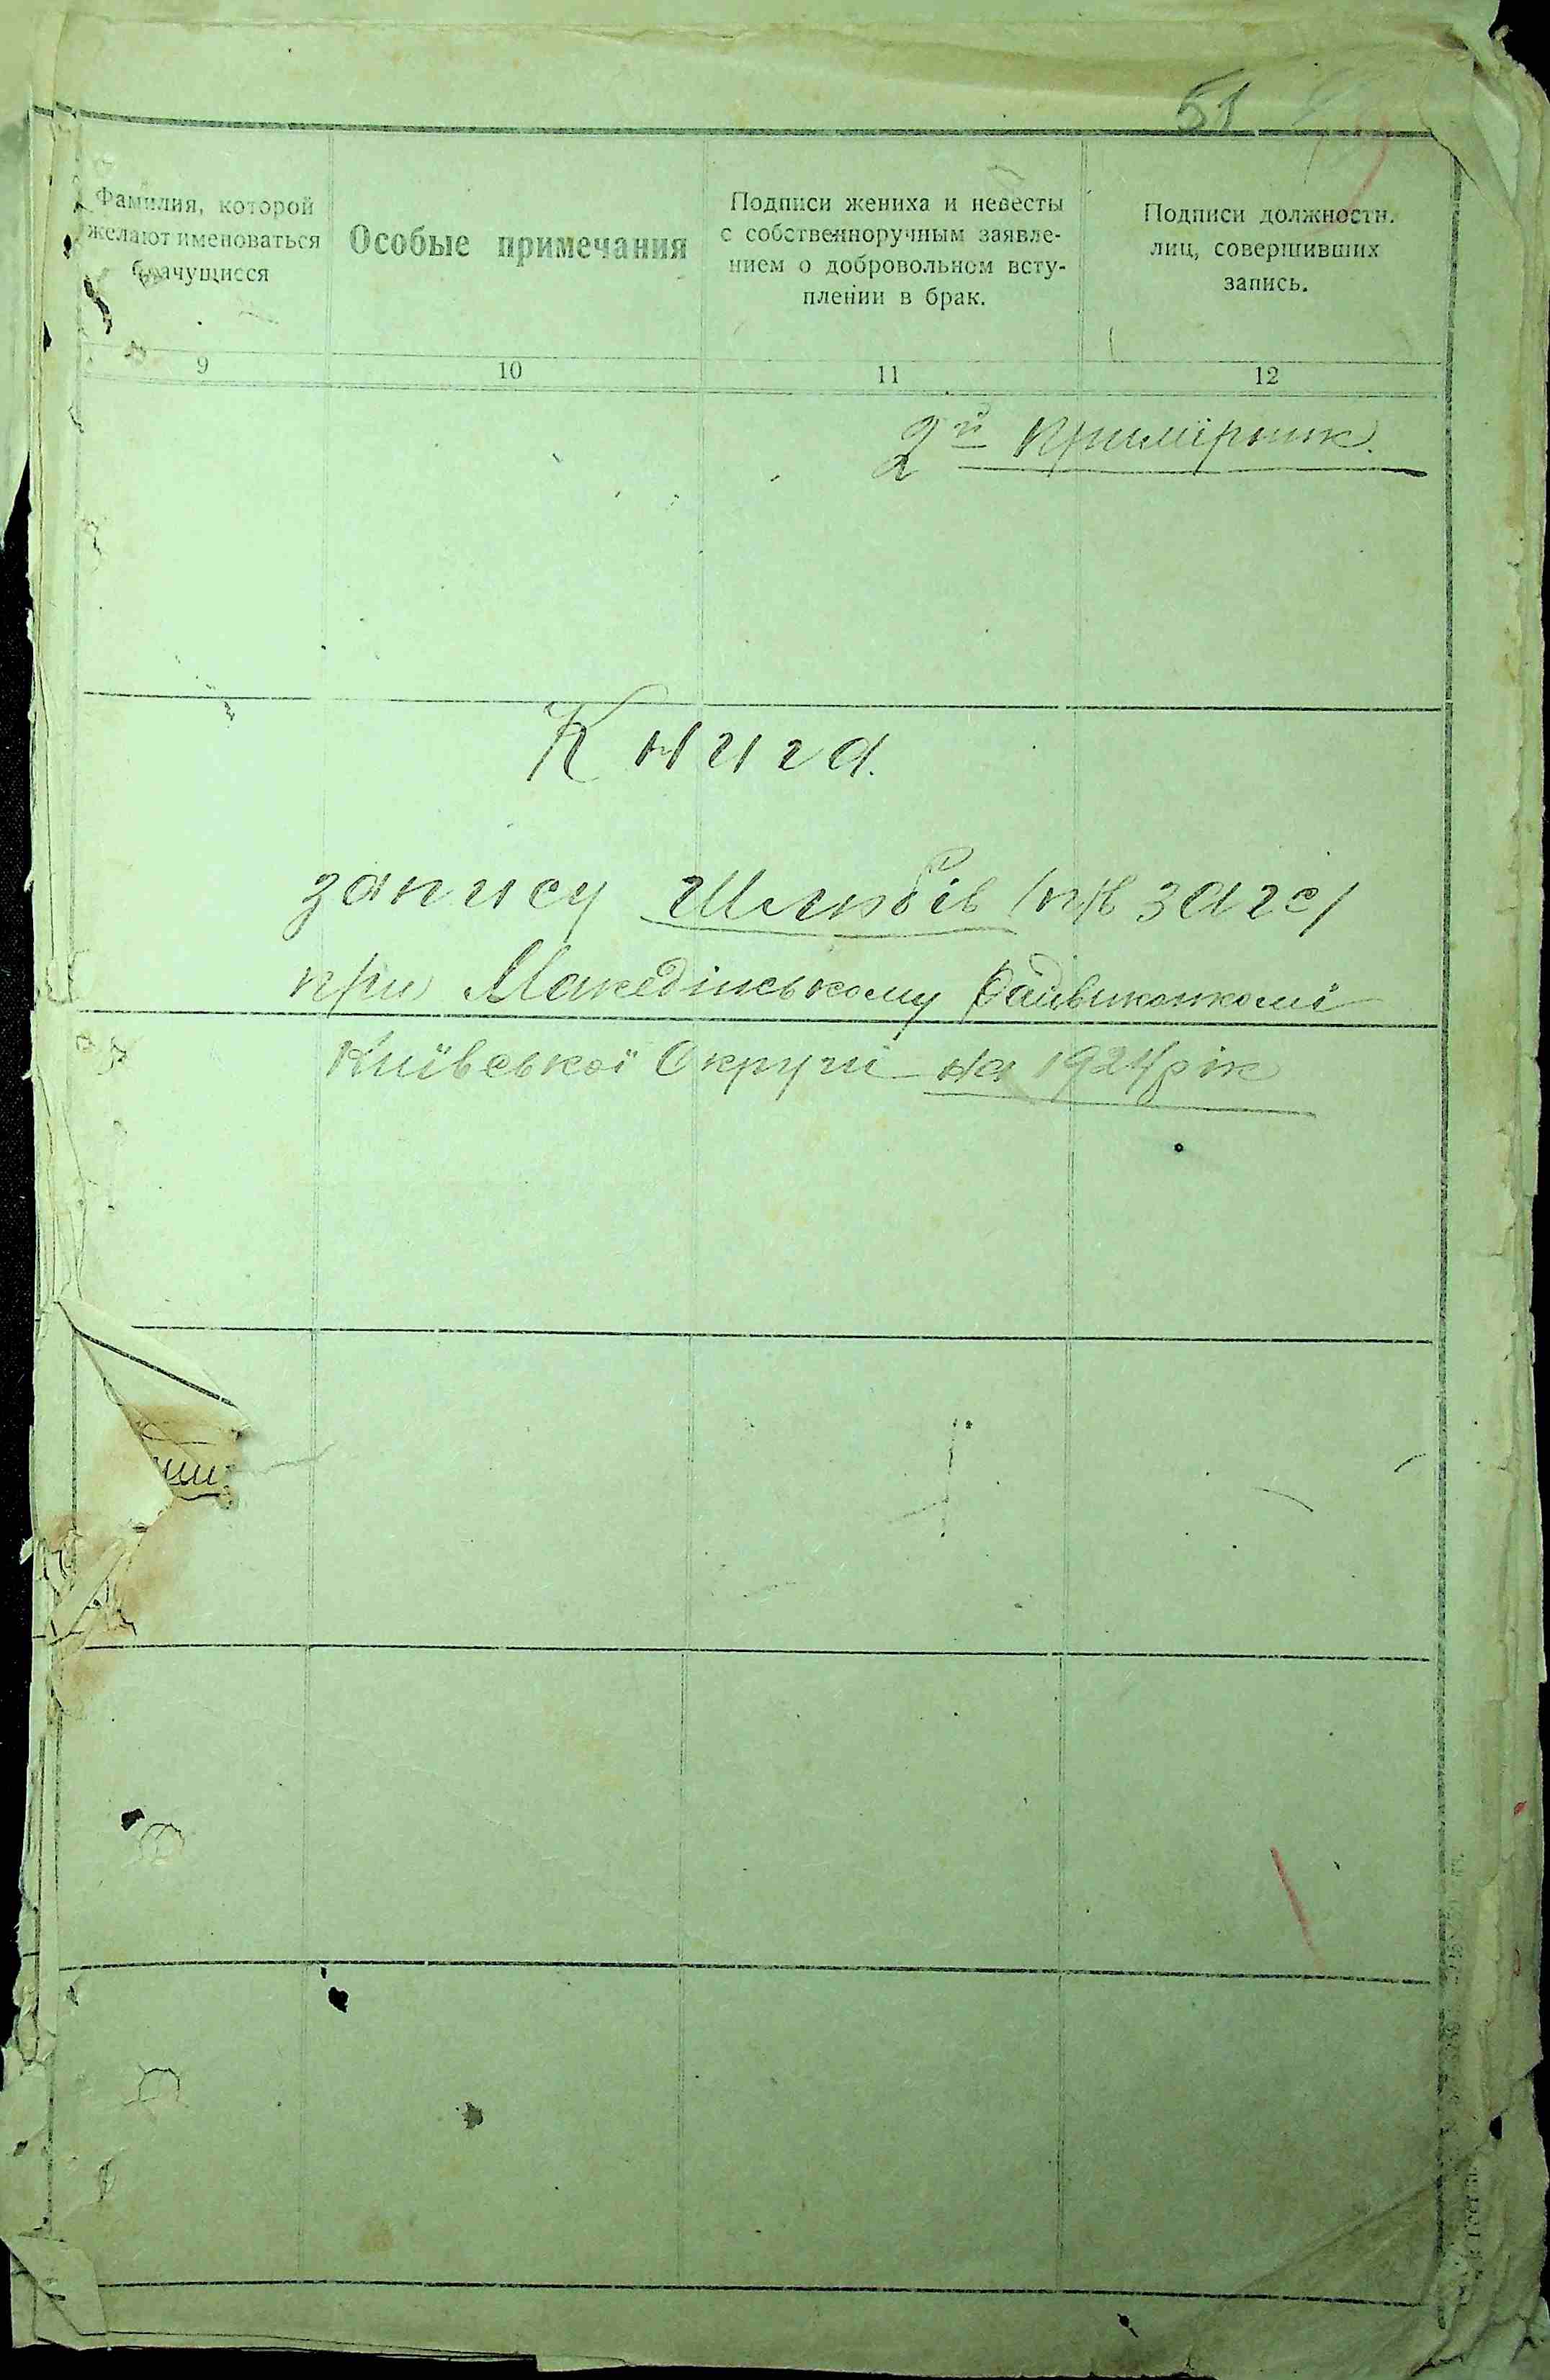 51
Фамилия, которой
желают именоваться
брачущиеся
Особые примечания
Подписи жениха и невесты
с собственноручным заявле-
нием о добровольном всту-
плении в брак.
Подписи должностн.
лиц, совершивших
запись.
9
10
11
12
2й примірник.
Книга
запису шлюбів
при Македінському Райвиконкомі
Київської Округи на 1924 рік